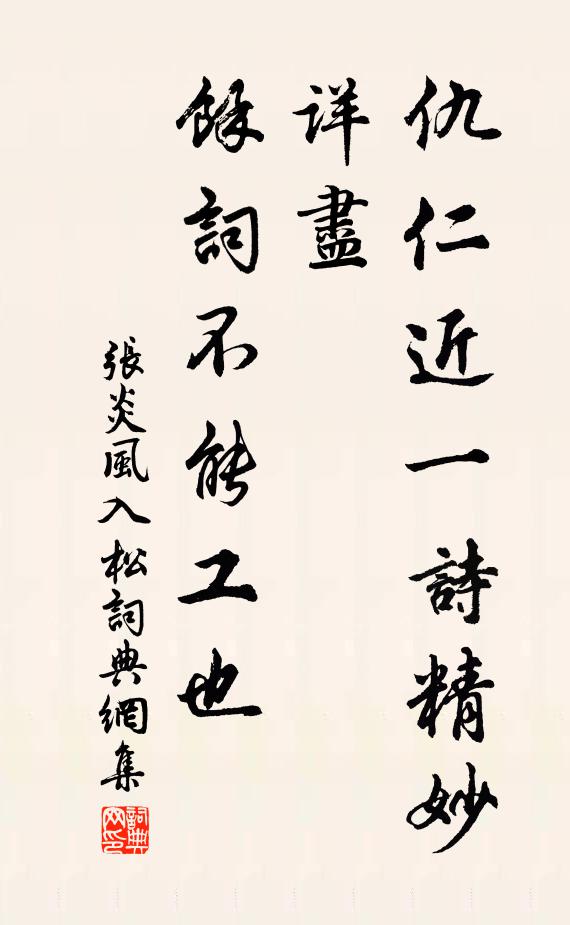 仇仁近一詩精妙
詳盡
餘詞不能工也
張炎風入松詞典網集
詞典网印